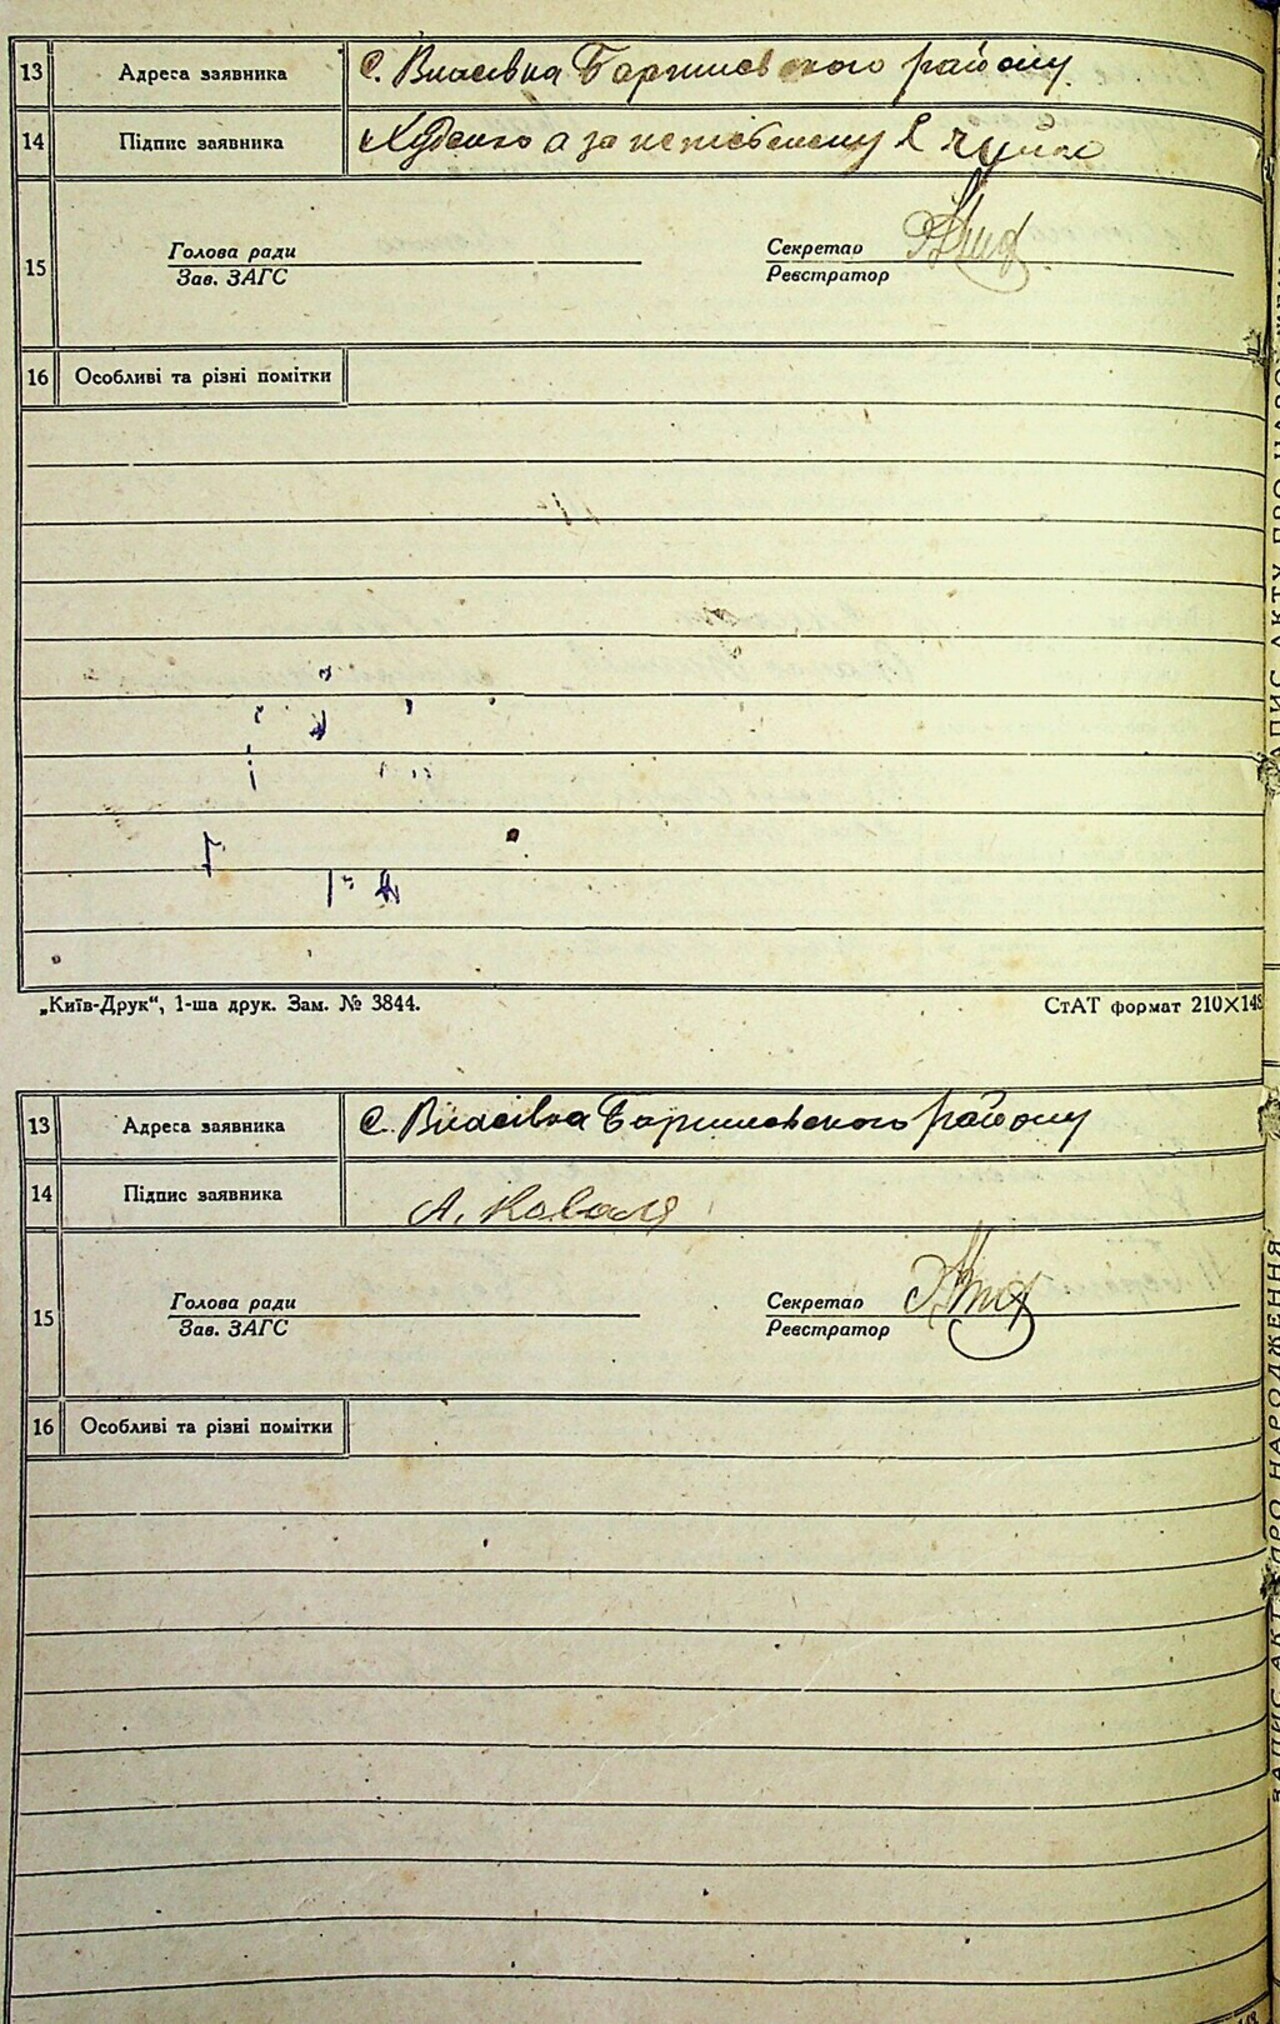 13 Адреса заявника с. Власівка Баришевського району
14 Підпис заявника Худенко а за неписьменну
15 Голова ради Секретар
Зав. ЗАГС Реєстратор
16 Особливі та різні помітки
„Київ-Друк“, 1-ша друк. Зам. № 3844. СтАТ формат 210×148
13 Адреса заявника с. Власівка Баришевського району
14 Підпис заявника А. Коваль
15 Голова ради Секретар
Зав. ЗАГС Реєстратор
16 Особливі та різні помітки
ПРО НАРОДЖЕННЯ